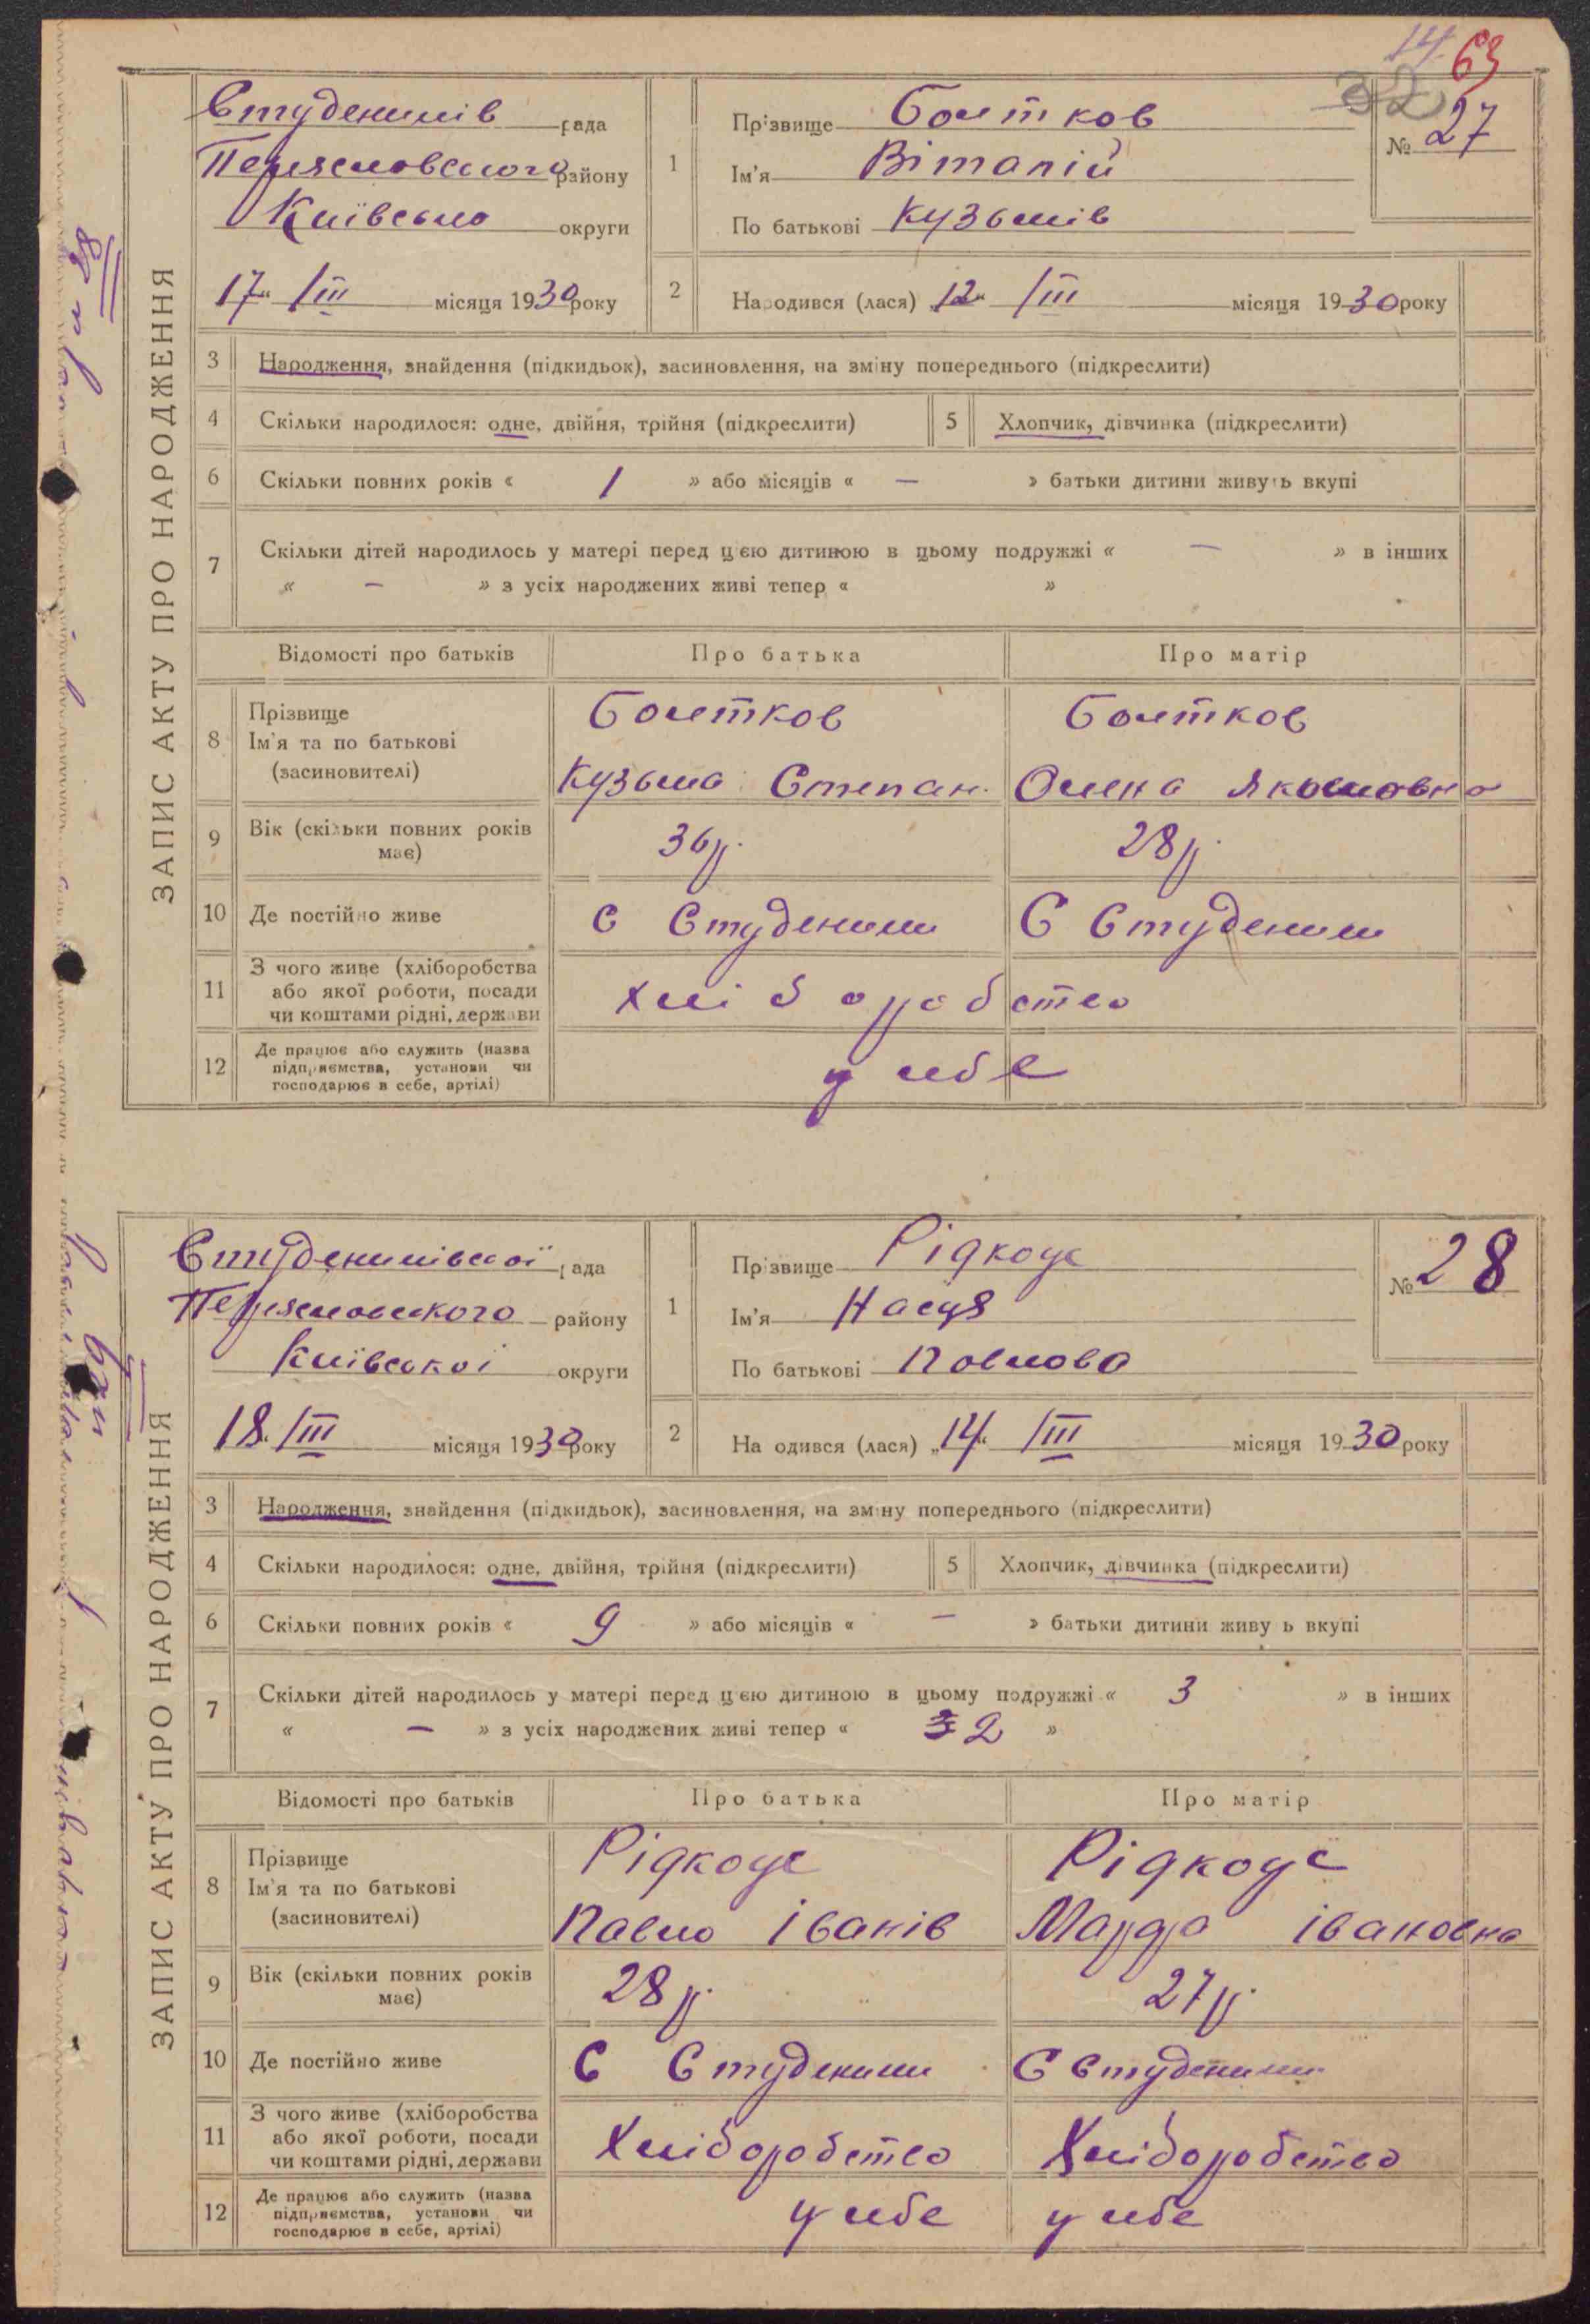 14 63
32
ЗАПИС АКТУ ПРО НАРОДЖЕННЯ
Студеників рада
Переяславського району
Київсько округи
"17" /III місяця 1930 року
1
Прізвище Болтков
Ім'я Віталій
По батькові Кузьмів
№ 27
2 Народився (лася) "12" /III місяця 1930 року
3 Народження, знайдення (підкидьок), засиновлення, на зміну попереднього (підкреслити)
4 Скільки народилося: одне, двійня, трійня (підкреслити) 5 Хлопчик, дівчинка (підкреслити)
6 Скільки повних років « 1 » або місяців « — » батьки дитини живуть вкупі
7 Скільки дітей народилось у матері перед цією дитиною в цьому подружжі « — » в інших
« — » з усіх народжених живі тепер « »
Відомості про батьків Про батька Про матір
8 Прізвище
Ім'я та по батькові
(засиновителі)
Болтков Болтков
Кузьма Степан. Олена Якомовна
9 Вік (скільки повних років має) 36 р. 28 р.
10 Де постійно живе С Студеники С Студеники
11 З чого живе (хліборобства
або якої роботи, посади
чи коштами рідні, держави
хліборобство
12 Де працює або служить (назва
підприємства, установи чи
господарює в себе, артілі)
у себе
ЗАПИС АКТУ ПРО НАРОДЖЕННЯ
Студениківської рада
Переяславського району
Київської округи
"18" /III місяця 1930 року
1
Прізвище Рідкоус
Ім'я Насця
По батькові Павлова
№ 28
2 Народився (лася) "14" /III місяця 1930 року
3 Народження, знайдення (підкидьок), засиновлення, на зміну попереднього (підкреслити)
4 Скільки народилося: одне, двійня, трійня (підкреслити) 5 Хлопчик, дівчинка (підкреслити)
6 Скільки повних років « 9 » або місяців « — » батьки дитини живуть вкупі
7 Скільки дітей народилось у матері перед цією дитиною в цьому подружжі « 3 » в інших
« — » з усіх народжених живі тепер « 3 2 »
Відомості про батьків Про батька Про матір
8 Прізвище
Ім'я та по батькові
(засиновителі)
Рідкоус Рідкоус
Павло Іванів Марфа Івановна
9 Вік (скільки повних років має) 28 р. 27 р.
10 Де постійно живе С Студеники С Студеники
11 З чого живе (хліборобства
або якої роботи, посади
чи коштами рідні, держави
Хліборобство Хліборобство
12 Де працює або служить (назва
підприємства, установи чи
господарює в себе, артілі)
у себе у себе